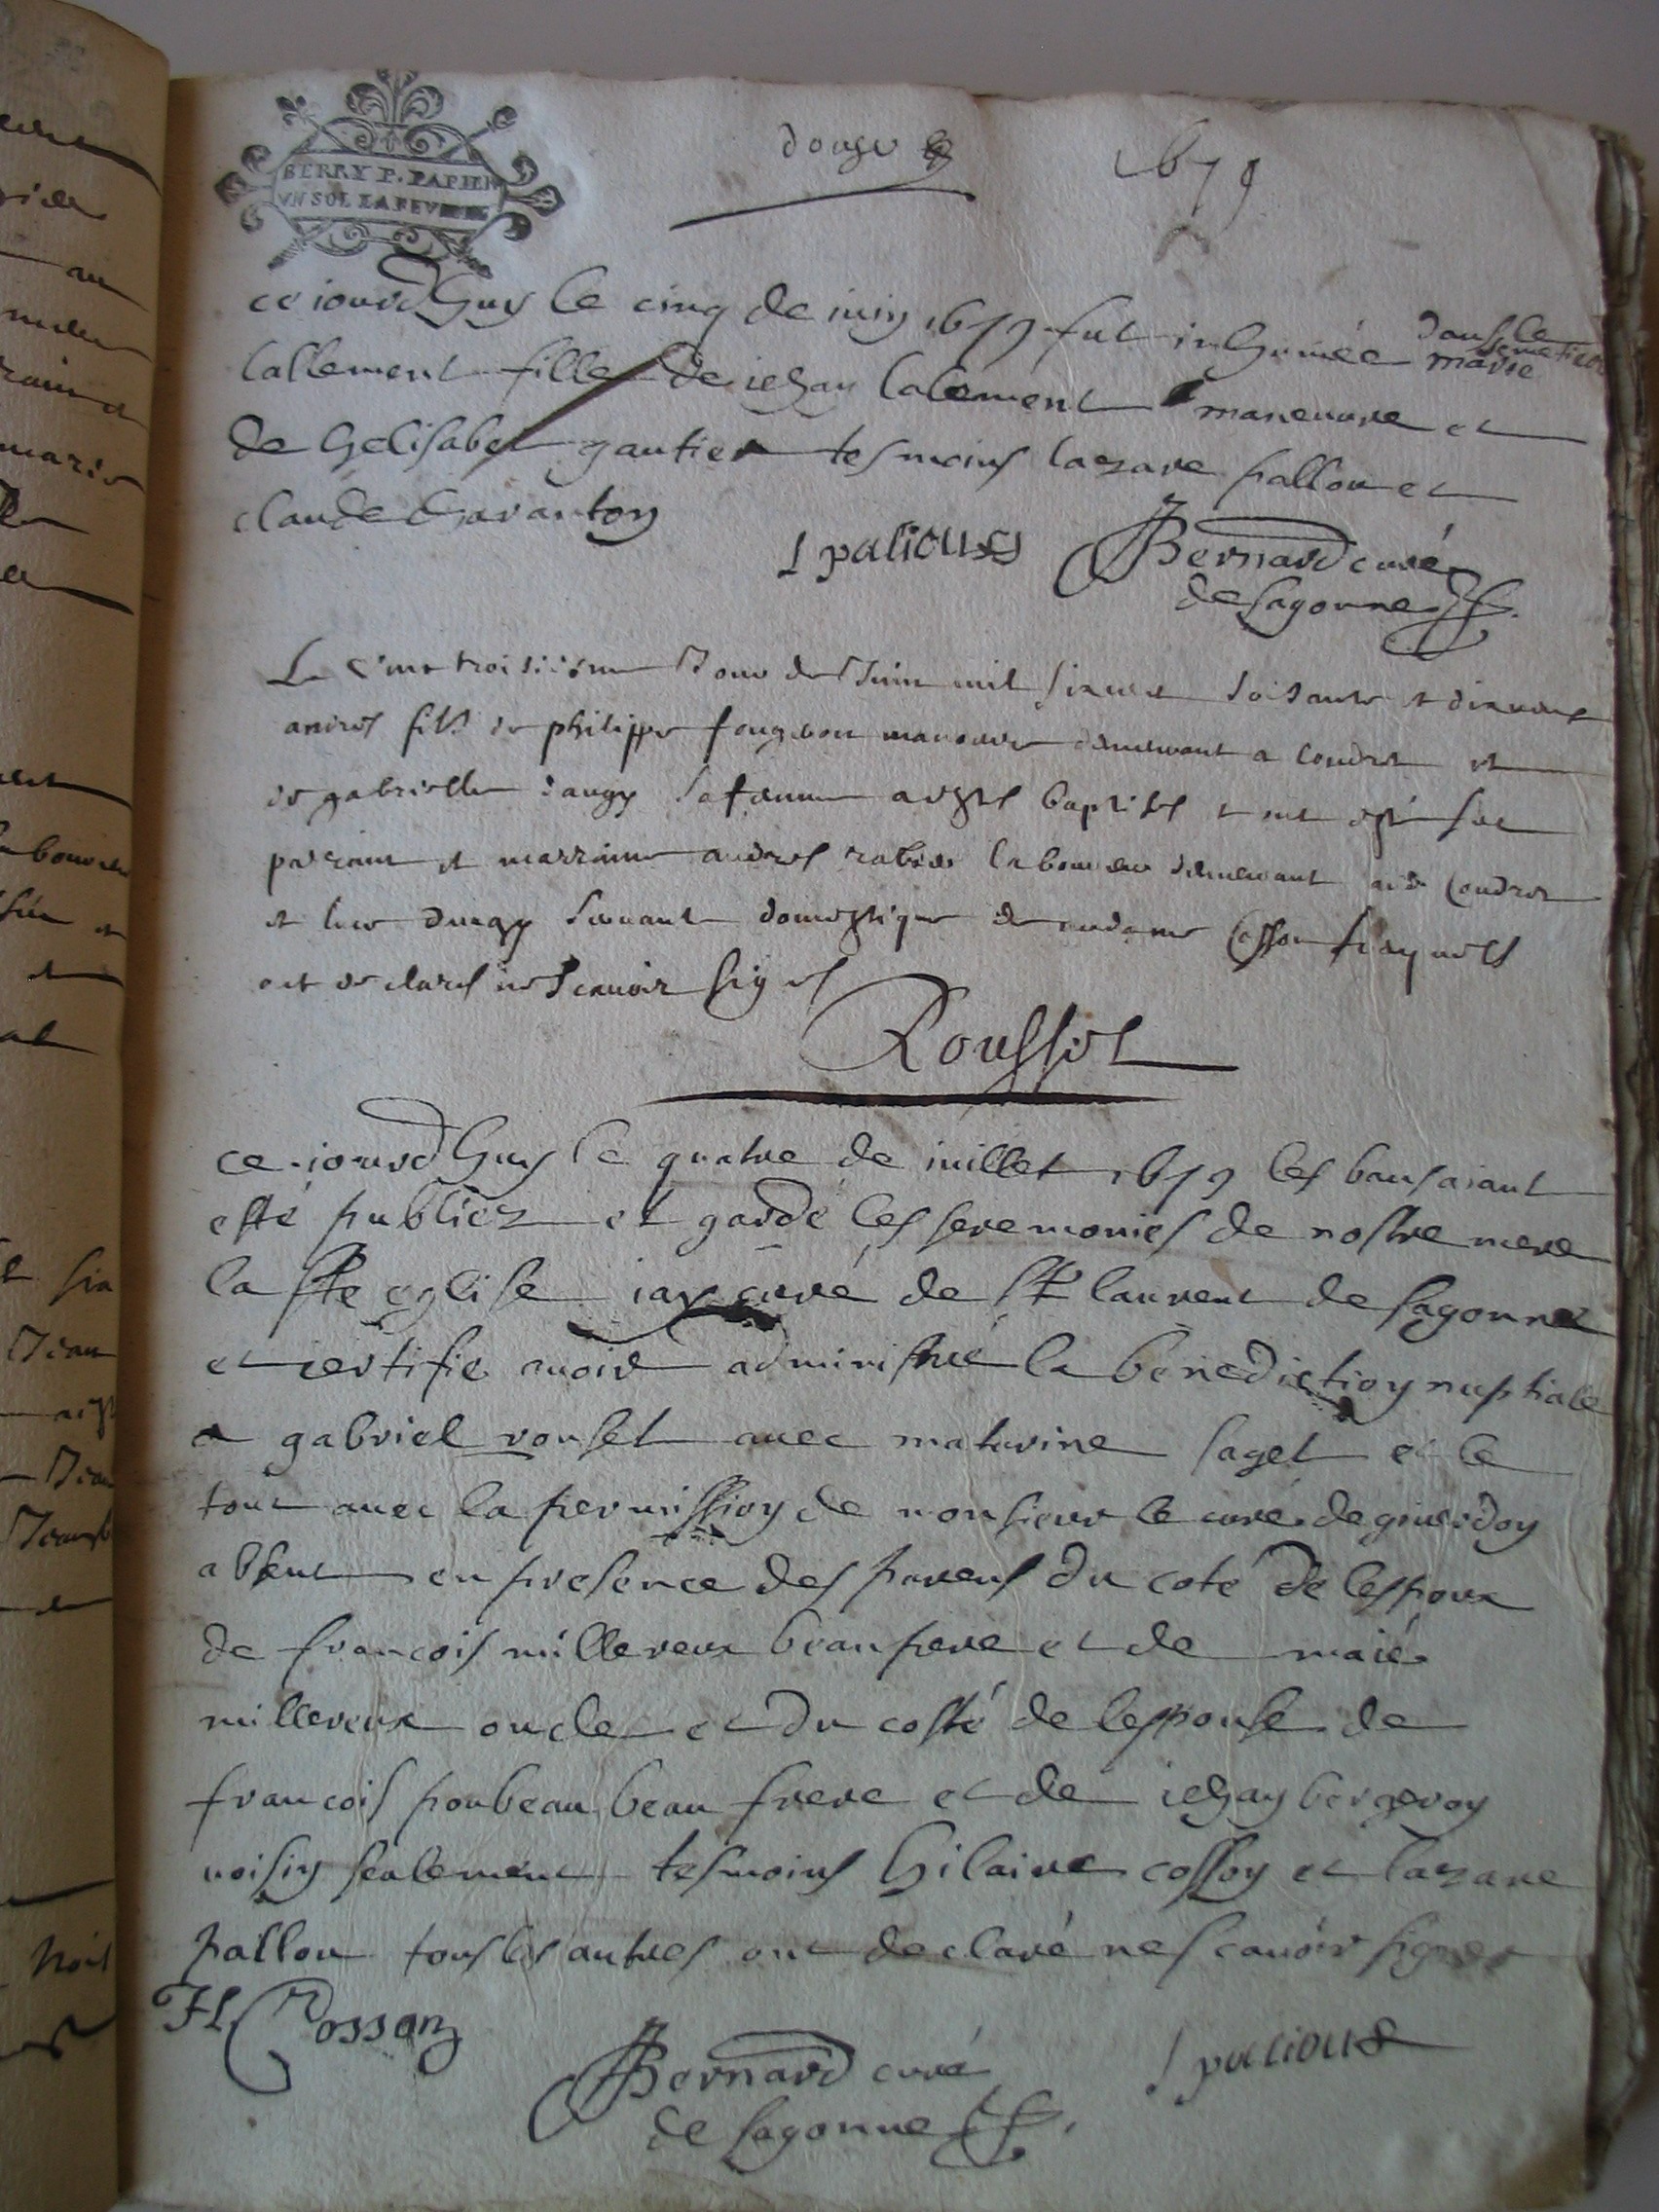 BERRY P. PAPIER
VN SOL LA FEVILLE
1679
ce iourdhuy le cinq de iuin 1679 fut inhumée dans le semetiere marie
lallement fille de iehan lalement maneuvre et
de helisabet gautier tesmoins lazare pallou et
claude
l palious Bernard curé
de sagonne
Le troisieme Jour de Juin mil six cent soisante et dixneuf
andre fils de philippe fougerou manouvre demeurant a coudret et
de gabrielle daugy sa femme a este baptise et ont esté ses
parrain et marraine andre rabier laboureur demeurant au coudret
et daugy seruant domestique de madame cosson lesquels
ont declare ne scauoir signer
Roussel
ce iourdhuy le quatre de iuillet 1679 les bans aiant
esté publiez et gardé les seremonies de nostre mere
la ste eglise iay curé de st laurent de sagonne
et certifie auoir administré la benediction nuptiale
a gabriel rouset auec maturine saget et le
tout auec la permission de monsieur le curé de giuerdon
absent en presence des parens du coté de lespoux
de francois millereux beau pere et de maié
millereux oncle et du costé de lespouse de
francois poubeau beau frere et de iehan bergeron
uoisin seulement tesmoins hilaire cosson et lazare
pallou tous les autres ont declaré ne scauoir signer
H Cosson
Bernard curé l palious
de sagonne